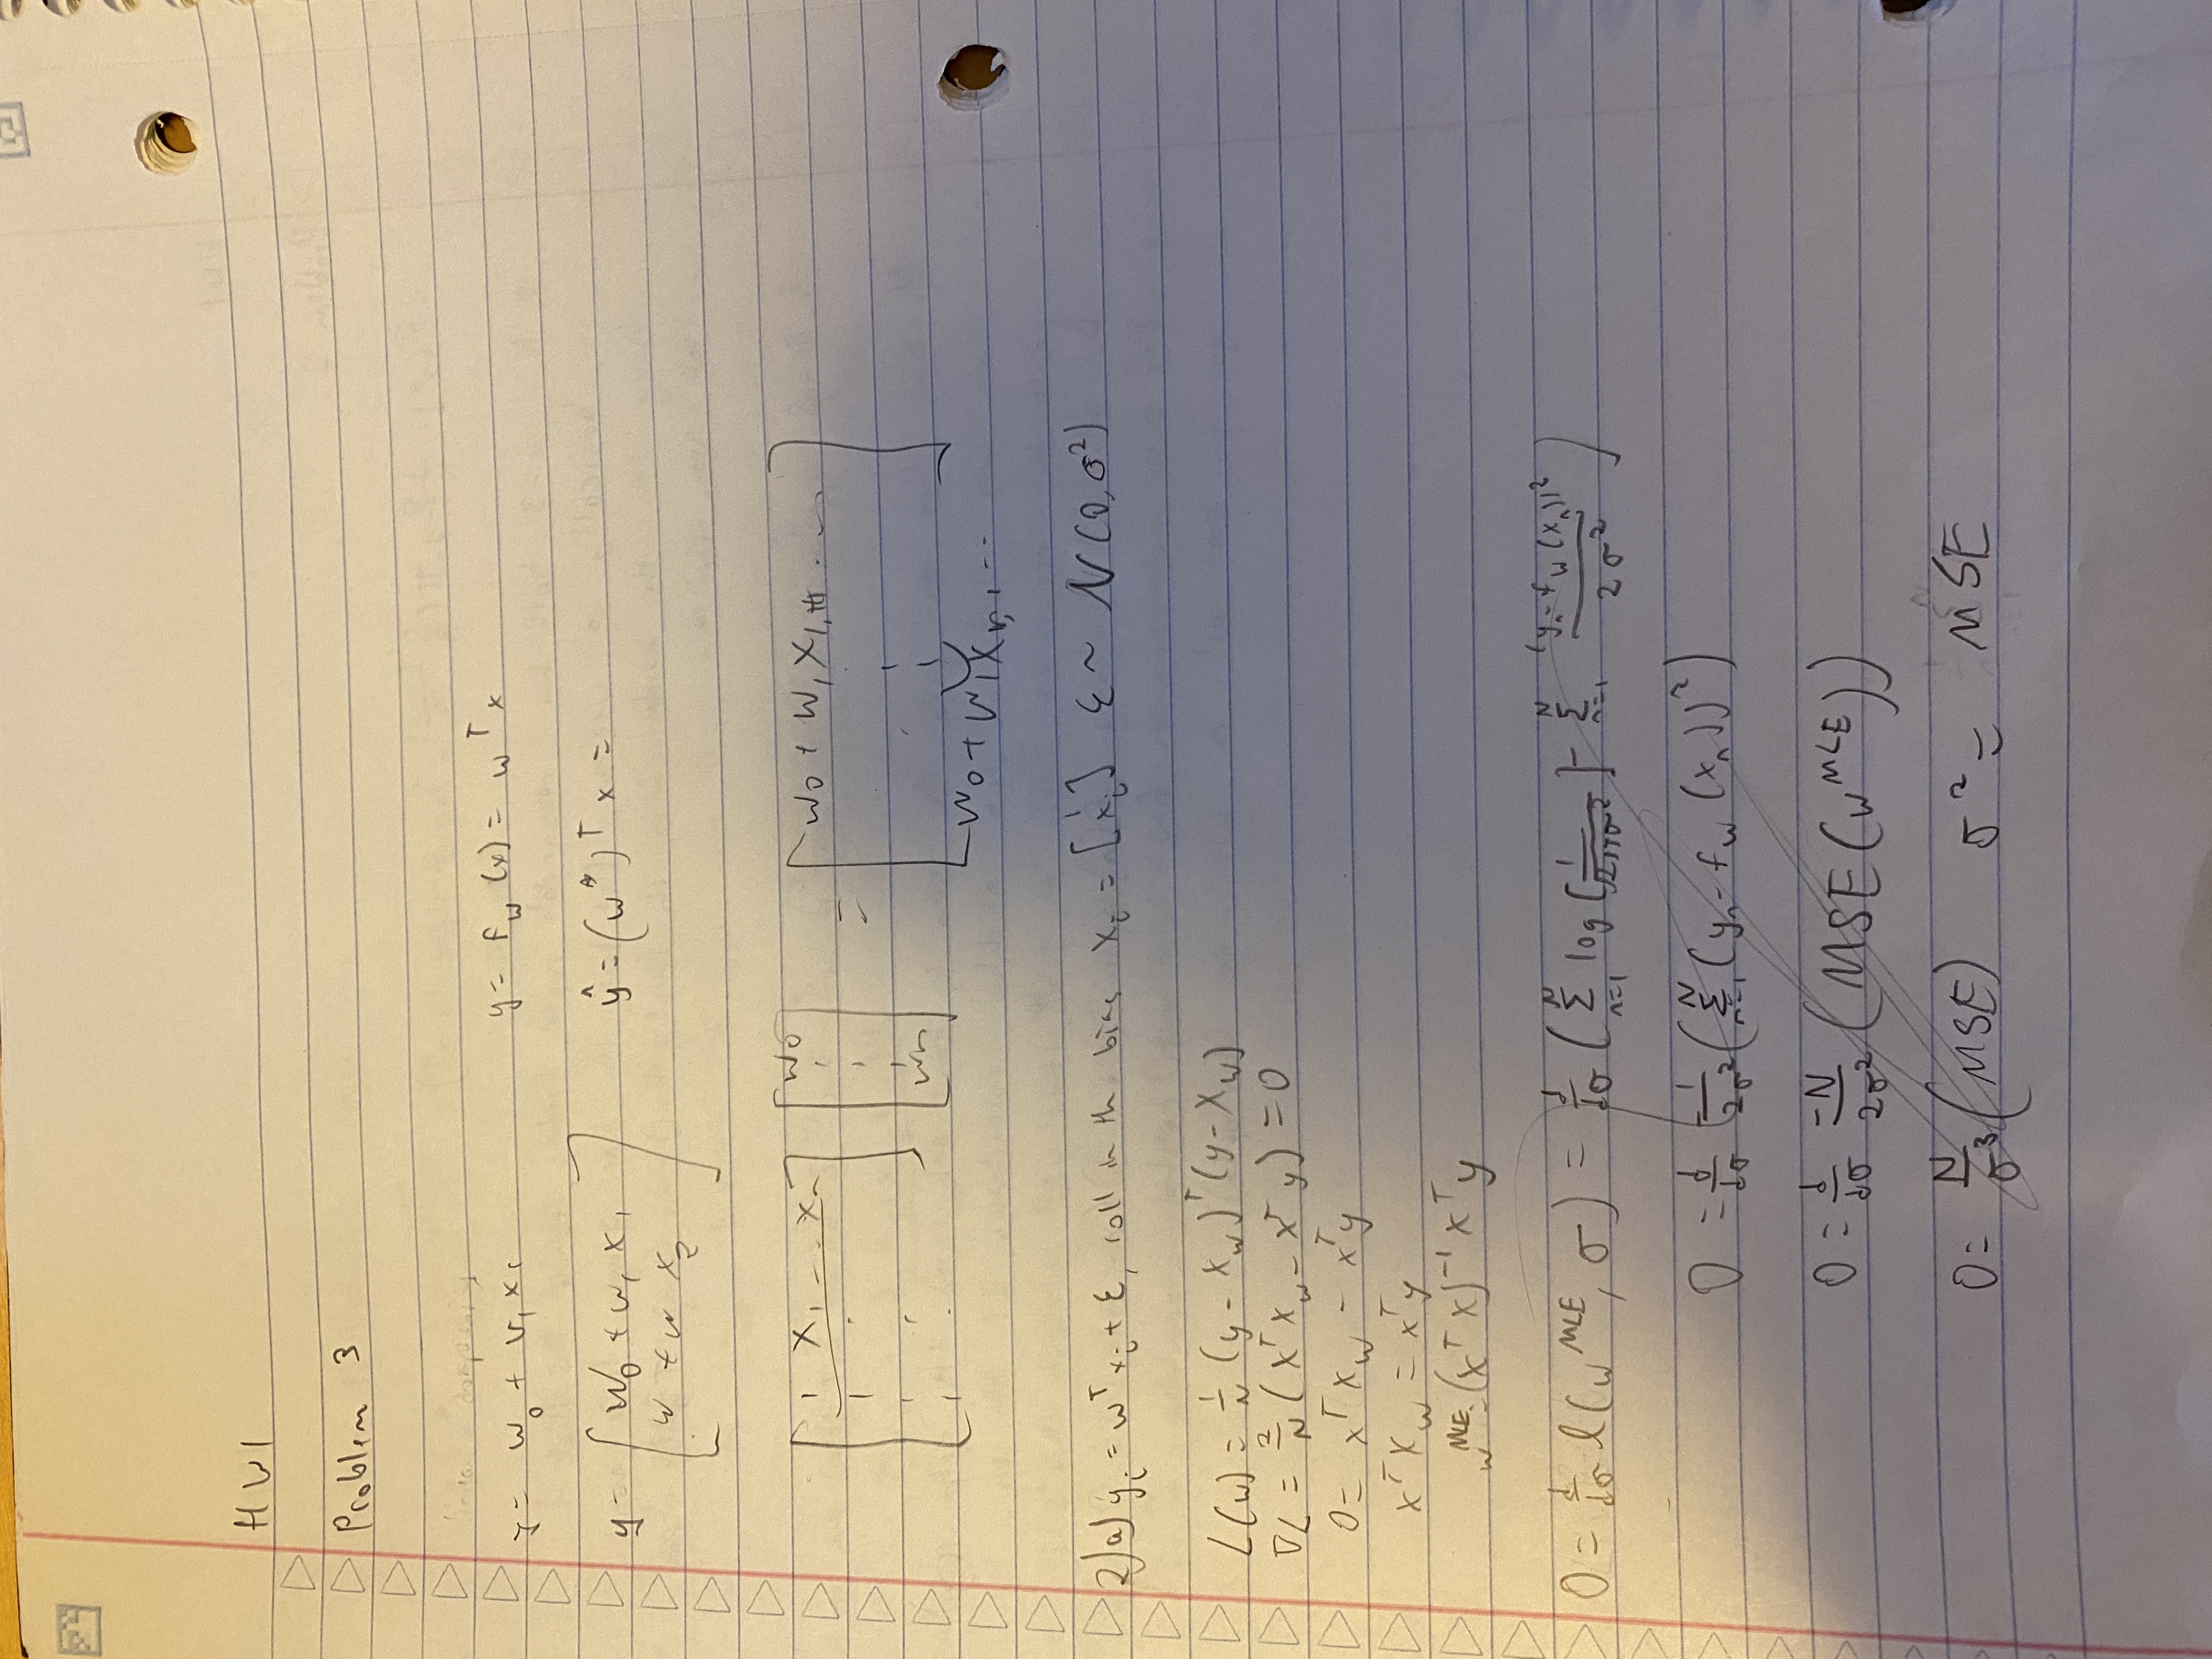 HW1
Problem 3
y = w₀ + w₁ x₁
y = f_w (x) = w^T x
y = [ w₀ + w₁ x₁
w + w x₂ ]
ŷ = (w*)^T x =
[ 1 x₁ ... xₙ ] [ w₀ ] = [ w₀ + w₁ x₁,₁ + ...
1 .
1 . wₙ
1 . w₀ + w₁ xₙ,₁ ... ]
2) a) y_i = w^T x_i + ε, roll in th bias x_i = [ 1 x_i ] ε ~ N(0, σ²)
L(w) = 1/N (y - Xw)^T (y - Xw)
∇L = 2/N (X^T Xw - X^T y) = 0
0 = X^T Xw - X^T y
X^T Xw = X^T y
w^MLE = (X^T X)^-1 X^T y
0 = d/dσ l(w^MLE, σ) = d/dσ ( Σ_{n=1}^N log [1/√(2πσ²)] - Σ_{n=1}^N (y_n - f_w(x_n))² / 2σ² )
0 = d/dσ -1/2σ² ( Σ_{n=1}^N (y_n - f_w (x_n))² )
0 = d/dσ -N/2σ² ( MSE(w^MLE) )
0 = N/σ³ (MSE) σ² = MSE